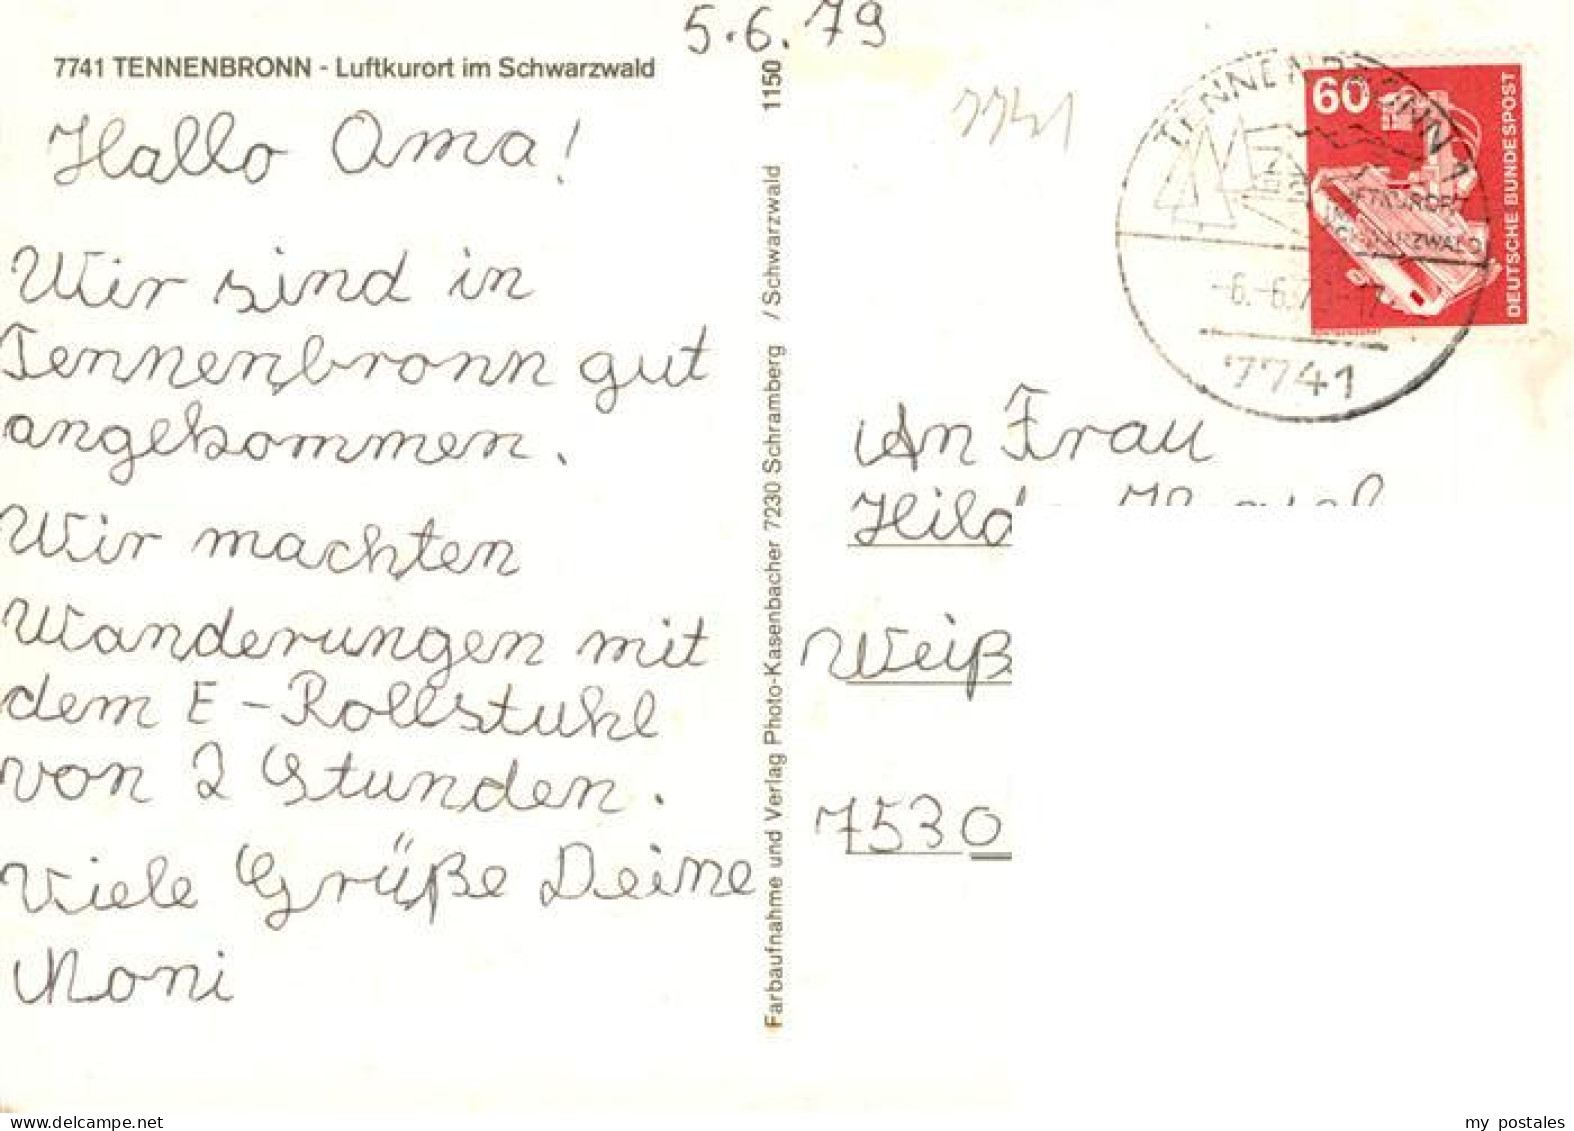 5.6.79
7741 TENNENBRONN - Luftkurort im Schwarzwald
Hallo Oma!
Wir sind in
Tennenbronn gut
angekommen.
Wir machten
Wanderungen mit
dem E-Rollstuhl
von 2 Stunden.
Viele Grüße Deine
Moni
Farbaufnahme und Verlag Photo-Kasenbacher 7230 Schramberg / Schwarzwald 1150
7741
TENNENBRONN 1
LUFTKURORT
IM
SCHWARZWALD
-6.-6.7
7741
60
DEUTSCHE BUNDESPOST
An Frau
Weiß
7530
my postales